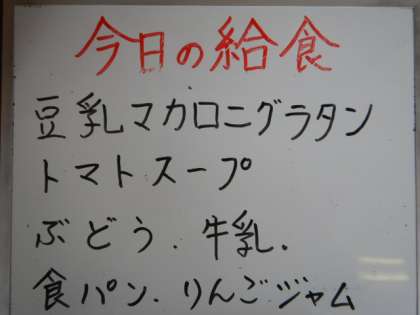 今日の給食
豆乳マカロニグラタン
トマトスープ
ぶどう.牛乳.
食パン.りんごジャム